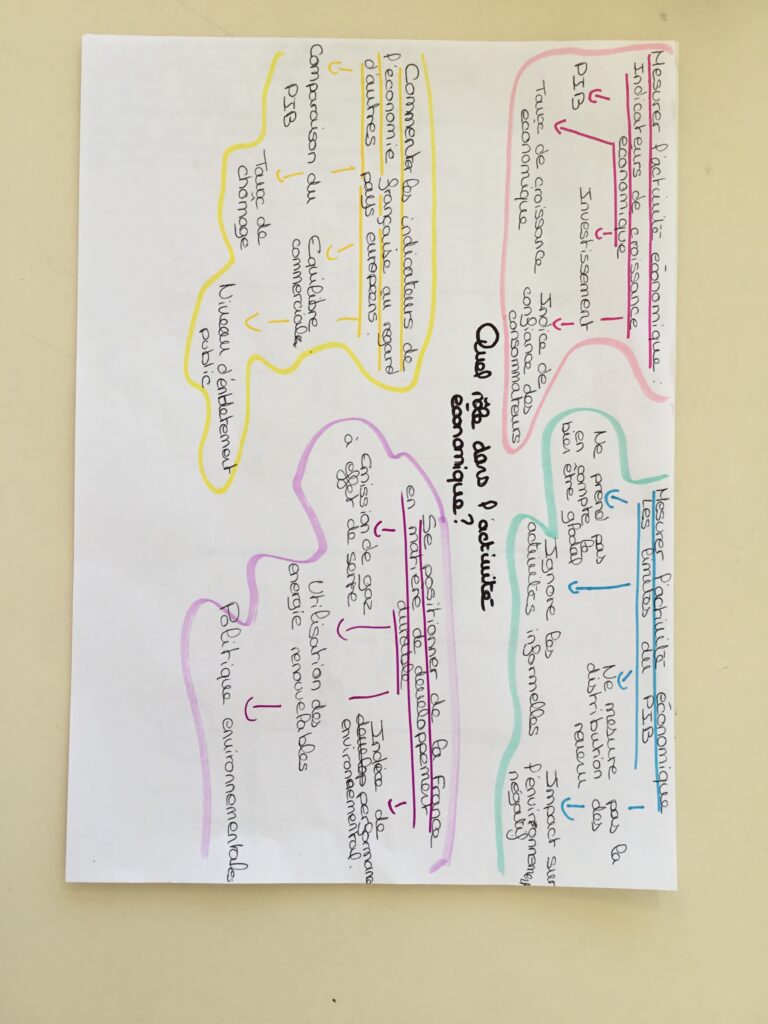 Mesurer l'activité économique :
Indicateurs de croissance
économique
PIB
Investissement
Taux de croissance
économique
Indice de
confiance des
consommateurs
Mesurer l'activité économique
Les limites du PIB
Ne prend pas
en compte le
bien être global
Ne mesure pas la
distribution des
revenu
Ignore les
activités informelles
Impact sur
l'environnement
négatif
Quel rôle dans l'activité
économique?
Commenter les indicateurs de
l'économie française au regard
d'autres pays européens :
Comparaison du
PIB
Equilibre
commerciale
Taux de
chômage
Niveau d'endettement
public
Se positionner de la France
en matière de developpement
durable
Emission de gaz
à effet de serre
Indice de
performance
environnemental.
Utilisation des
énergie renouvelables
Politique environnementales